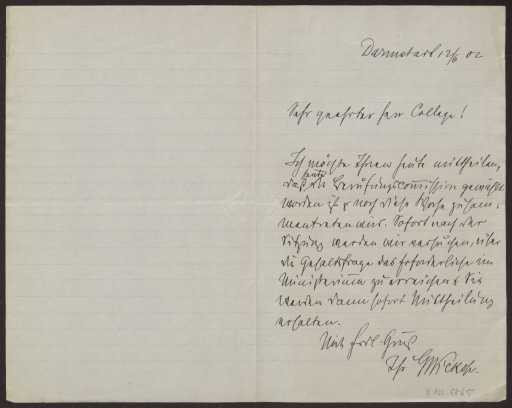 Darmstadt 12/6 02
Sehr geehrter Herr College!
Ich möchte Ihnen heute mittheilen,
daß heute die Berufungscommission gewählt
worden ist & noch diese Woche zusam-
mentreten wird. Sofort nach der
Sitzung werden wir versuchen, über
die Gehaltsfrage das Erforderliche im
Ministerium zu erreichen & Sie
werden dann sofort Mittheilung
erhalten.
Mit frdl. Gruß
Ihr